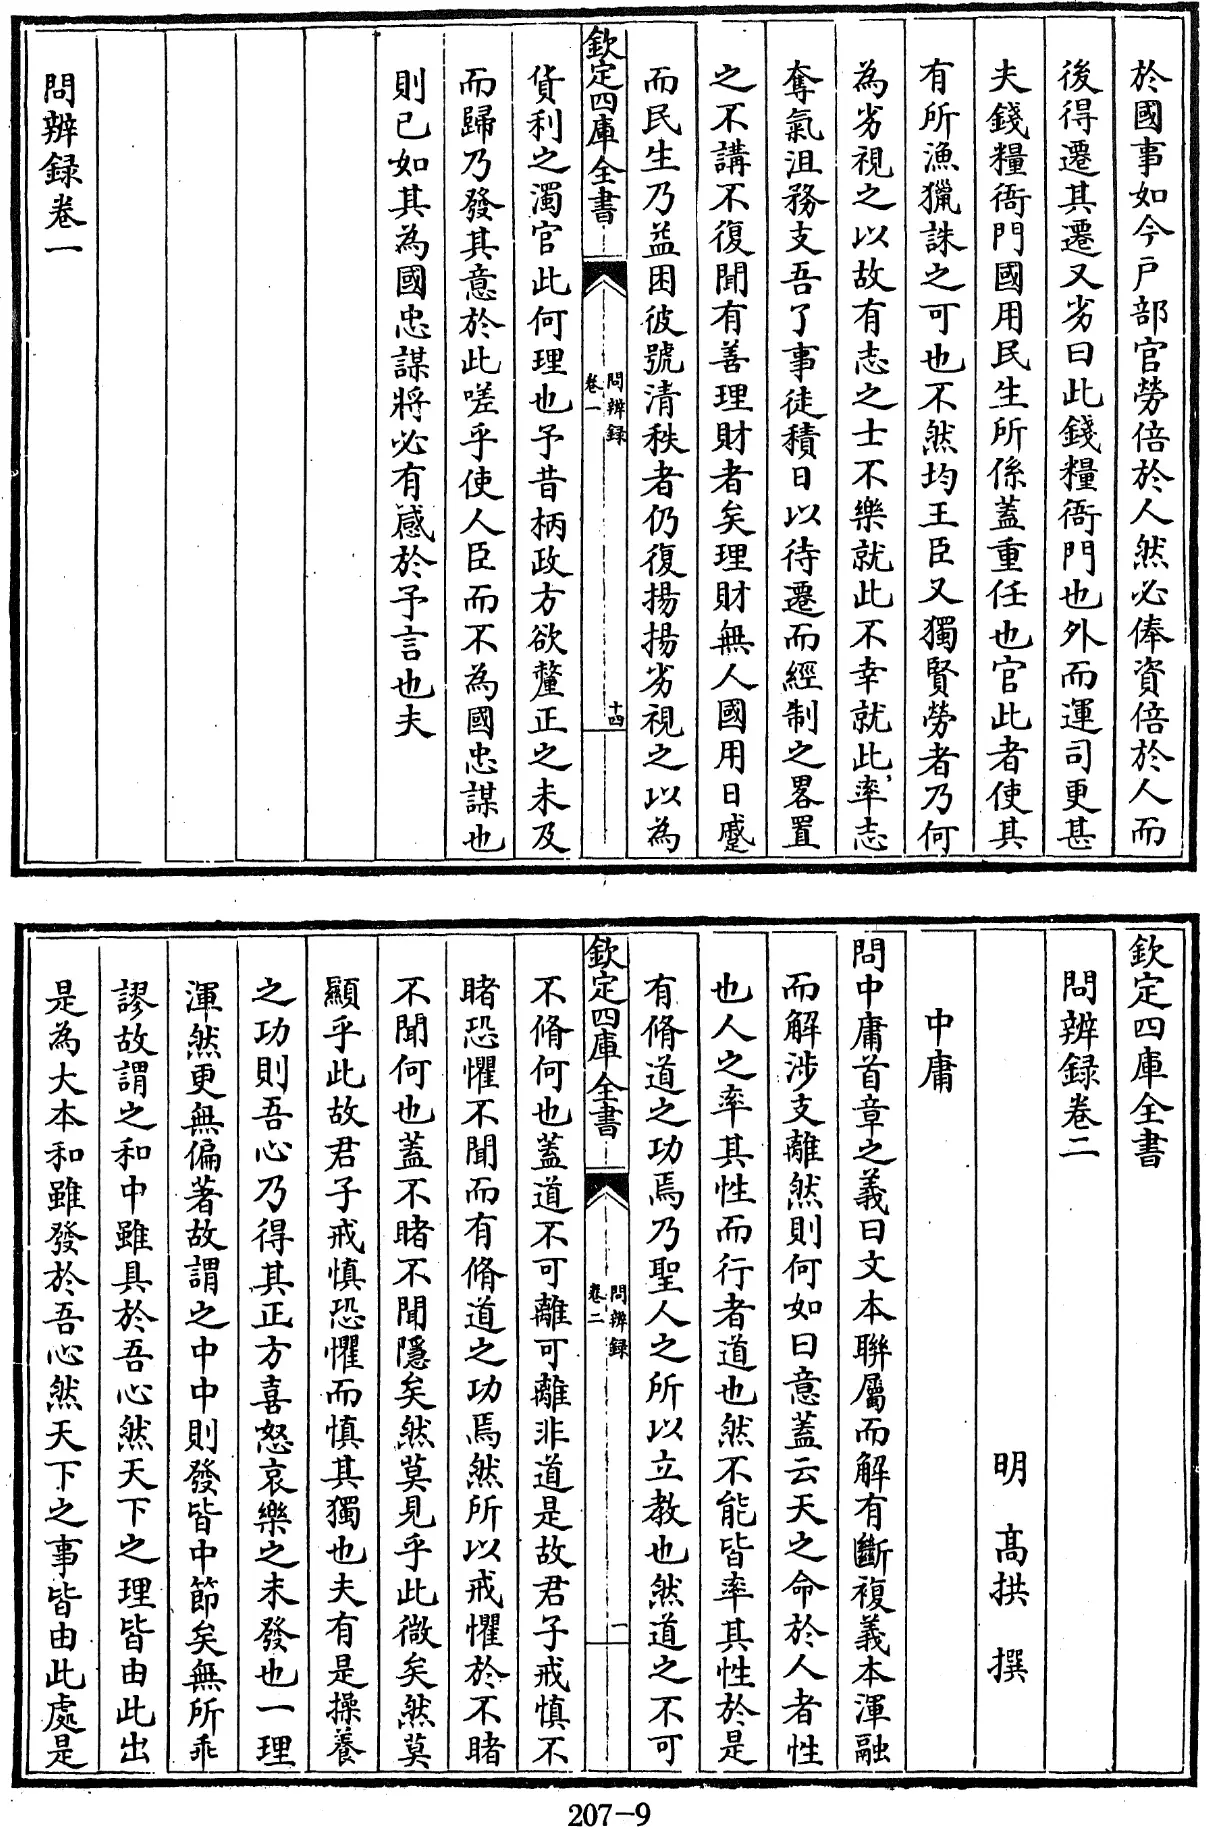 於國事如今戸部官勞倍於人然必俸資倍於人而
後得遷其遷又劣曰此錢糧衙門也外而運司更甚
夫錢糧衙門國用民生所係蓋重任也官此者使其
有所漁獵誅之可也不然均王臣又獨賢勞者乃何
為劣視之以故有志之士不樂就此不幸就此率志
奪氣沮務支吾了事徒積日以待遷而經制之畧置
之不講不復聞有善理財者矣理財無人國用日蹙
而民生乃益困彼號清秩者仍復揚揚劣視之以為
欽定四庫全書
問辨録
卷一
十四
貨利之濁官此何理也予昔柄政方欲釐正之未及
而歸乃發其意於此嗟乎使人臣而不為國忠謀也
則已如其為國忠謀將必有感於予言也夫
問辨録卷一
欽定四庫全書
問辨録卷二
明 高拱 撰
中庸
問中庸首章之義曰文本聯屬而解有斷複義本渾融
而解涉支離然則何如曰意蓋云天之命於人者性
也人之率其性而行者道也然不能皆率其性於是
有脩道之功焉乃聖人之所以立教也然道之不可
欽定四庫全書
問辨録
卷二
一
不脩何也蓋道不可離可離非道是故君子戒慎不
睹恐懼不聞而有脩道之功焉然所以戒懼於不睹
不聞何也蓋不睹不聞隱矣然莫見乎此微矣然莫
顯乎此故君子戒慎恐懼而慎其獨也夫有是操養
之功則吾心乃得其正方喜怒哀樂之未發也一理
渾然更無偏著故謂之中中則發皆中節矣無所乖
謬故謂之和中雖具於吾心然天下之理皆由此出
是為大本和雖發於吾心然天下之事皆由此處是
207-9